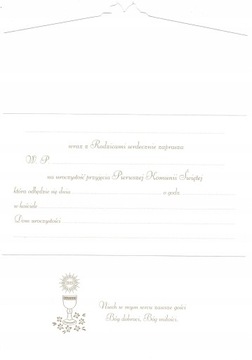 wraz z Rodzicami serdecznie zaprasza
W. P.
na uroczystość przyjęcia Pierwszej Komunii Świętej
która odbędzie się dnia o godz.
w kościele
Dom uroczystości
Niech w mym sercu zawsze gości
Bóg dobroci, Bóg miłości.